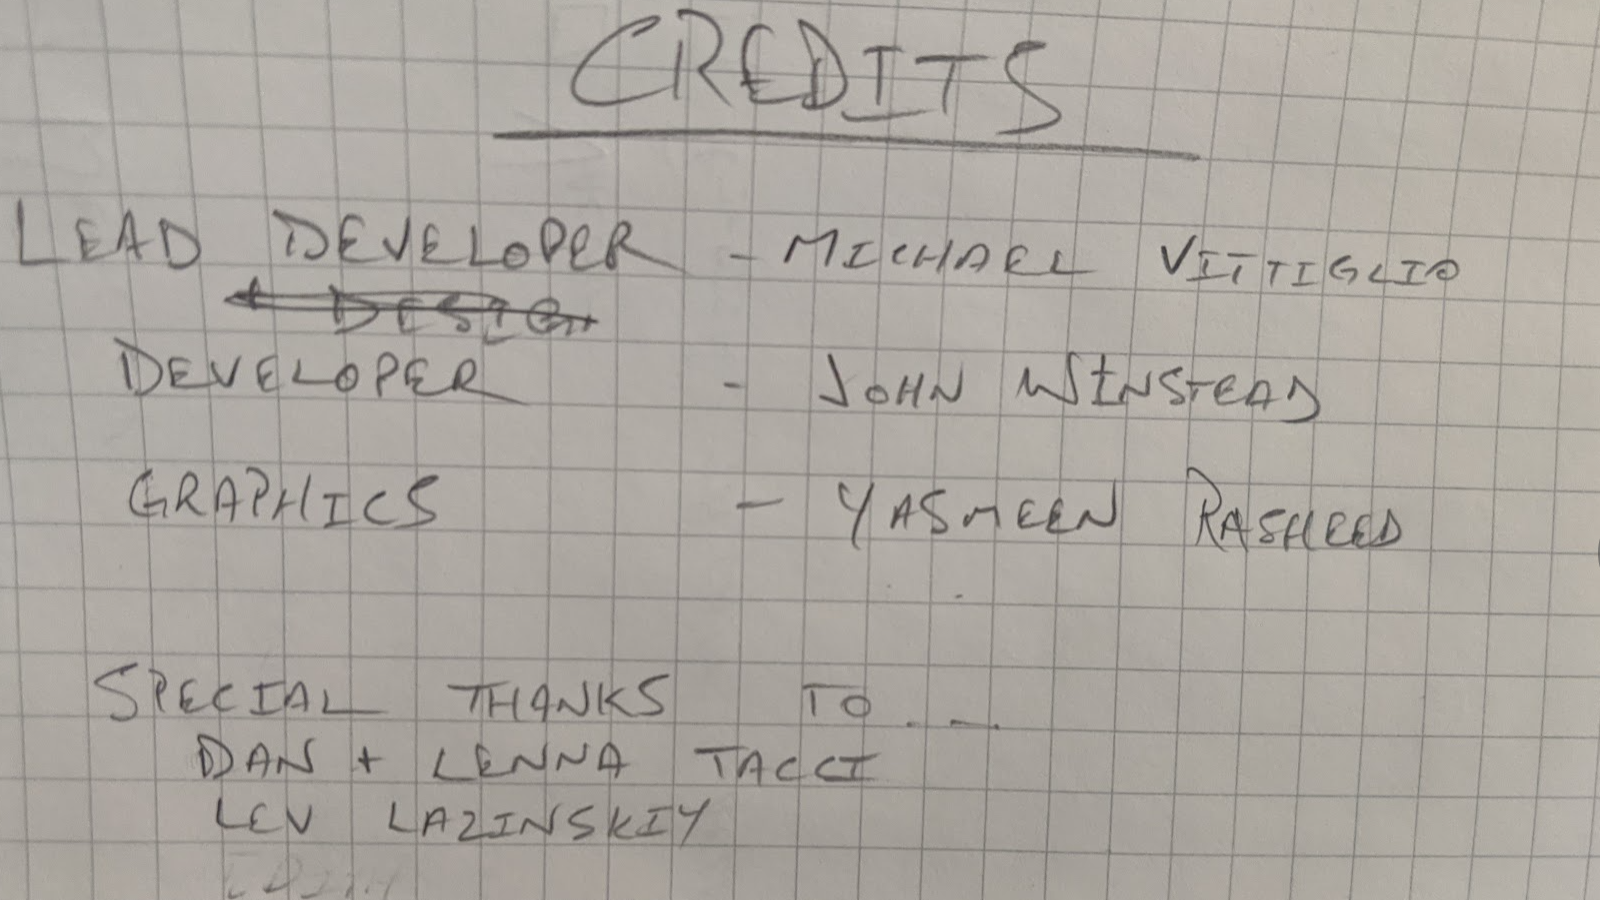 CREDITS
LEAD DEVELOPER - MICHAEL VITTIGLIO
+ DESIGN
DEVELOPER - JOHN WINSTEAD
GRAPHICS - YASMEEN RASHEED
SPECIAL THANKS TO...
DAN + LENNA TACCI
LEV LAZINSKIY